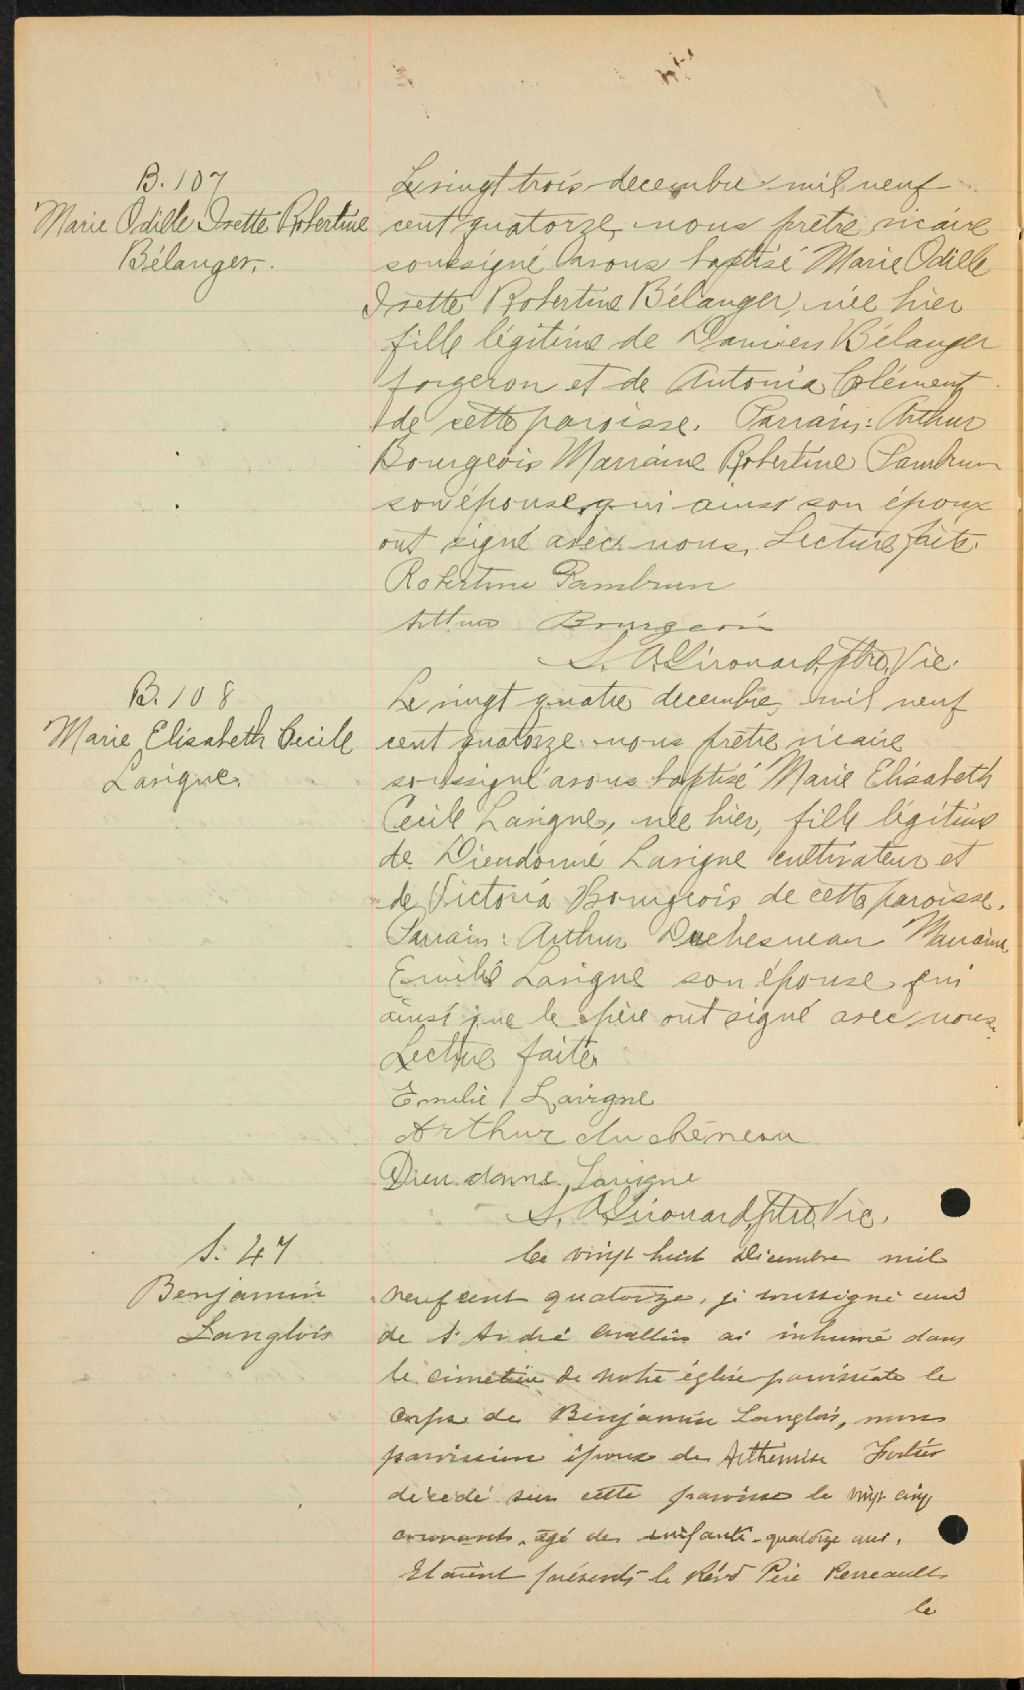 B. 107
Marie Odille Isette Robertine
Bélanger.
Le vingt trois decembre mil neuf
cent quatorze, nous prêtre vicaire
soussigné avons baptisé Marie Odille
Isette Robertine Bélanger, née hier
fille légitime de Damien Bélanger
forgeron et de Antonia Clément
de cette paroisse. Parrain: Arthur
Bourgeois Marraine Robertine Pambrun
son épouse, qui ainsi son époux
ont signé avec nous. Lecture faite.
Robertine Pambrun
Arthur Bourgeois
S. A. Girouard, ptre, Vic.
B. 108
Marie Elisabeth Cecile
Lavigne.
Le vingt quatre decembre, mil neuf
cent quatorze nous prêtre vicaire
soussigné avons baptisé Marie Elisabeth
Cecile Lavigne, née hier, fille légitime
de Dieudonné Lavigne cultivateur et
de Victoria Bourgeois de cette paroisse.
Parrain: Arthur Duchesneau Marraine
Emilie Lavigne son épouse qui
ainsi que le père ont signé avec nous.
Lecture faite
Emelie Lavigne
Arthur du chêneau
Dieu donne Lavigne
S. A. Girouard, ptre, Vic.
S. 47
Benjamin
Langlois
Le vingt huit Décembre mil
neuf cent quatorze, je soussigné curé
de St André Avellin ai inhumé dans
le cimetière de notre église paroissiale le
corps de Benjamin Langlois, notre
paroissien époux de Arthémise Fortier
décédé sur cette paroisse le vingt cinq
courant, agé de soixante-quatorze ans.
Etaient présents le Révd Père Perreault
le